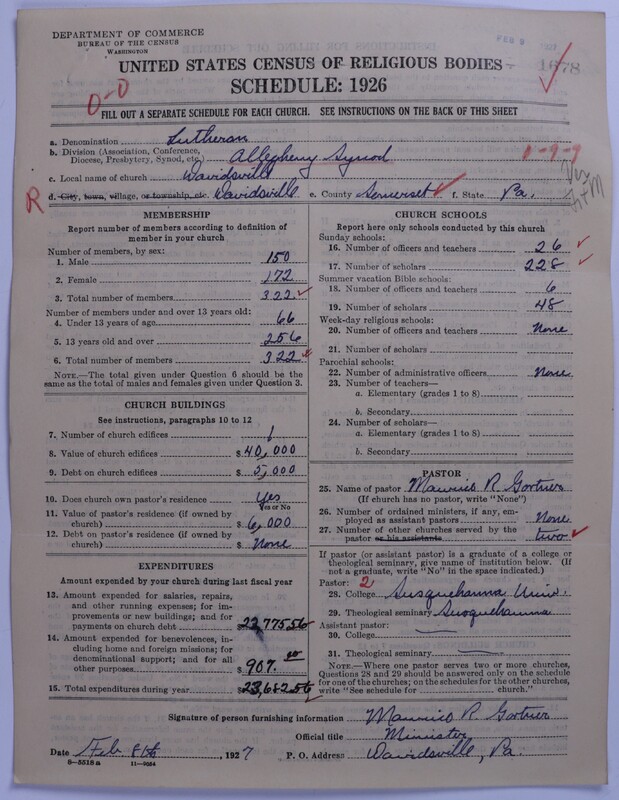 DEPARTMENT OF COMMERCE
BUREAU OF THE CENSUS
WASHINGTON
FEB 9
1678
UNITED STATES CENSUS OF RELIGIOUS BODIES
SCHEDULE: 1926
0-0
FILL OUT A SEPARATE SCHEDULE FOR EACH CHURCH. SEE INSTRUCTIONS ON THE BACK OF THIS SHEET
a. Denomination Lutheran
b. Division (Association, Conference, Diocese, Presbytery, Synod, etc.) Allegheny Synod
c. Local name of church Davidsville
R d. City, town, village, or township, etc. Davidsville e. County Somerset f. State Pa.
MEMBERSHIP
Report number of members according to definition of member in your church
Number of members, by sex:
1. Male 150
2. Female 172
3. Total number of members 322
Number of members under and over 13 years old:
4. Under 13 years of age 66
5. 13 years old and over 256
6. Total number of members 322
NOTE.—The total given under Question 6 should be the same as the total of males and females given under Question 3.
CHURCH BUILDINGS
See instructions, paragraphs 10 to 12
7. Number of church edifices 1
8. Value of church edifices $40,000
9. Debt on church edifices $5,000
10. Does church own pastor's residence Yes
Yes or No
11. Value of pastor's residence (if owned by church) $6,000
12. Debt on pastor's residence (if owned by church) $None
EXPENDITURES
Amount expended by your church during last fiscal year
13. Amount expended for salaries, repairs, and other running expenses; for improvements or new buildings; and for payments on church debt 22,775.56
14. Amount expended for benevolences, including home and foreign missions; for denominational support; and for all other purposes $907.00
15. Total expenditures during year $23,682.56
CHURCH SCHOOLS
Report here only schools conducted by this church
Sunday schools:
16. Number of officers and teachers 26
17. Number of scholars 228
Summer vacation Bible schools:
18. Number of officers and teachers 6
19. Number of scholars 48
Week-day religious schools:
20. Number of officers and teachers None
21. Number of scholars
Parochial schools:
22. Number of administrative officers None
23. Number of teachers—
a. Elementary (grades 1 to 8)
b. Secondary
24. Number of scholars—
a. Elementary (grades 1 to 8)
b. Secondary
PASTOR
25. Name of pastor Maurice R. Gortner
(If church has no pastor, write "None")
26. Number of ordained ministers, if any, employed as assistant pastors None
27. Number of other churches served by the pastor or his assistants two
If pastor (or assistant pastor) is a graduate of a college or theological seminary, give name of institution below. (If not a graduate, write "No" in the space indicated.)
Pastor: 2
28. College Susquehanna Univ.
29. Theological seminary Susquehanna
Assistant pastor:
30. College
31. Theological seminary
NOTE.—Where one pastor serves two or more churches, Questions 28 and 29 should be answered only on the schedule for one of the churches; on the schedules for the other churches, write "See schedule for church."
Signature of person furnishing information Maurice R. Gortner
Official title Minister
Date Feb. 8th, 1927 P. O. Address Davidsville, Pa.
8-5518 a 11-9034